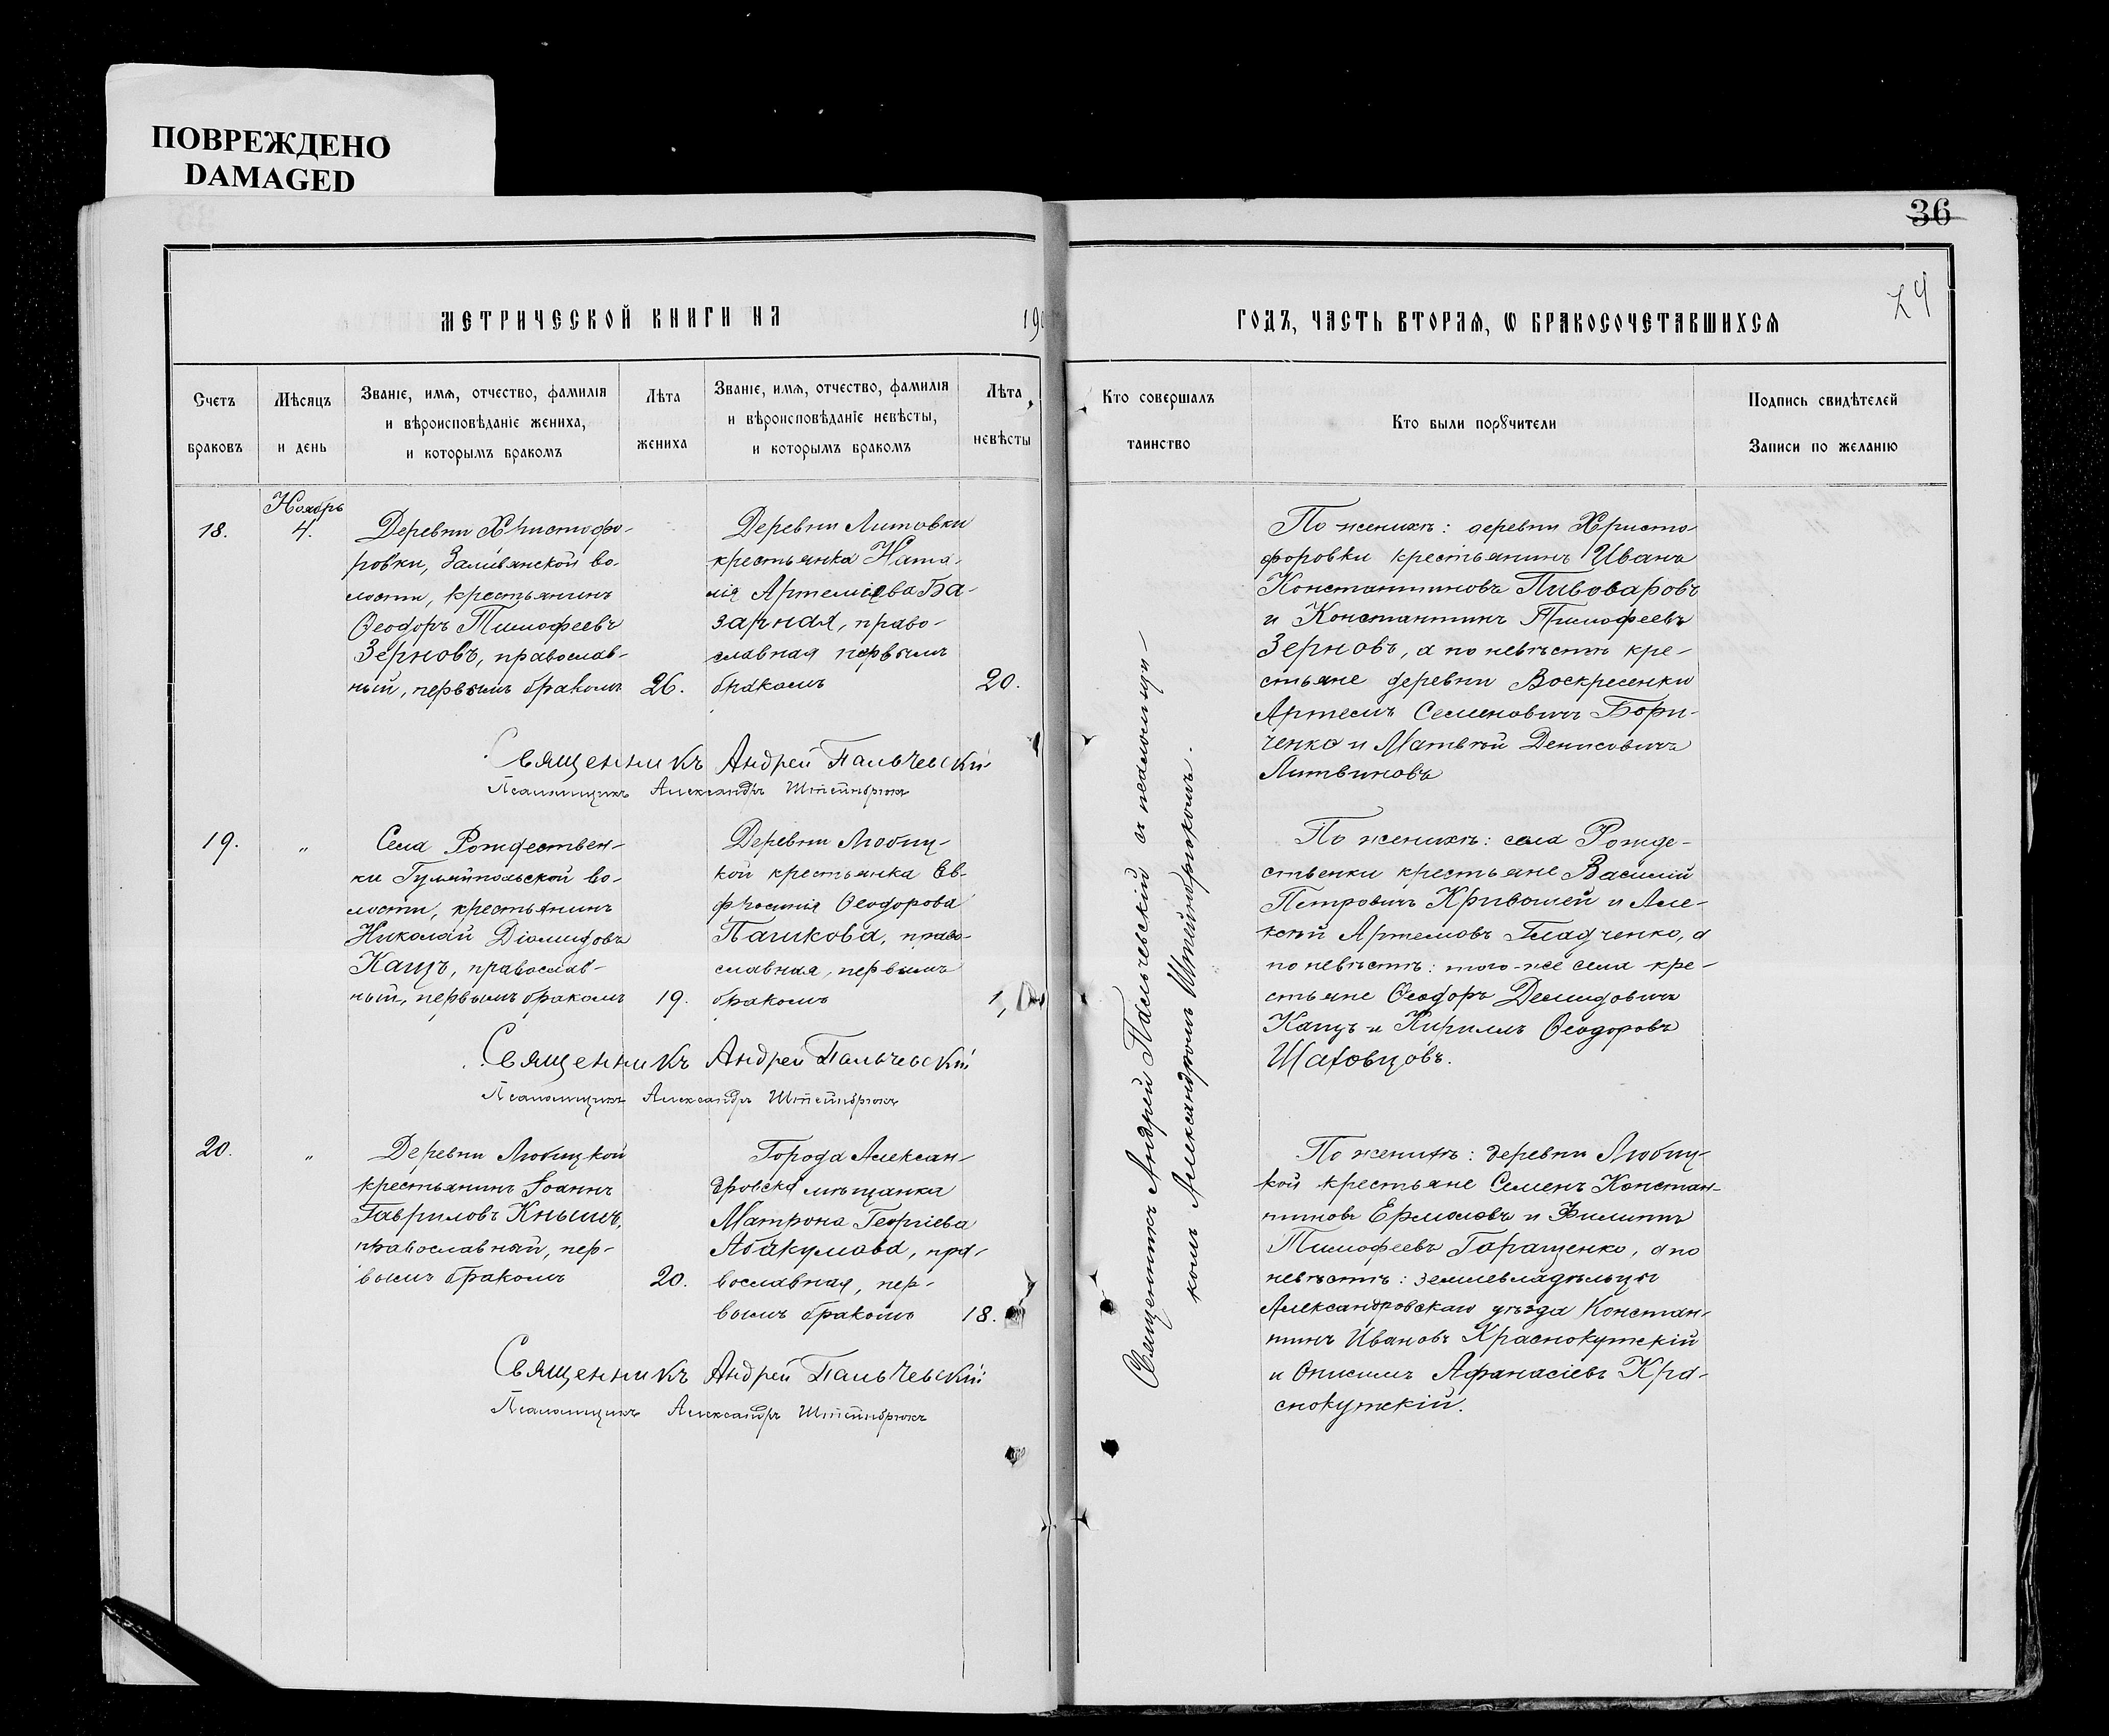 ПОВРЕЖДЕНО
DAMAGED
36
24
МЕТРИЧЕСКОЙ КНИГИ НА 19
ГОДЪ, ЧАСТЬ ВТОРАЯ, Ѡ БРАКОСОЧЕТАВШИХСЯ
Счетъ браковъ
Мѣсяцъ и день
Званіе, имя, отчество, фамилія
и вѣроисповѣданіе жениха,
и которымъ бракомъ
Лѣта жениха
Званіе, имя, отчество, фамилія
и вѣроисповѣданіе невѣсты,
и которымъ бракомъ
Лѣта невѣсты
Кто совершалъ таинство
Кто были порꙋчители
Подпись свидѣтелей
Записи по желанію
Ноябрь
18.
4.
Деревни Христофо-
ровки, Заливянской во-
лости, крестьянинъ
Ѳеодоръ Тимофеевъ
Зерновъ, православ-
ный, первымъ бракомъ
26.
Деревни Литовки
крестьянка Ната-
лія Артеміева Ба-
зарная, право-
славная первымъ
бракомъ
20.
Священникъ Андрей Пальчевскій
Псаломщикъ Александръ Штейнбрюкъ
По женихѣ: деревни Христо
форовки крестьянинъ Иванъ
Константиновъ Пивоваровъ
и Константинъ Тимофеевъ
Зерновъ, а по невѣстѣ кре-
стьяне деревни Воскресенки
Артемъ Семеновичъ Бори-
ченко и Матвѣй Денисовичъ
Литвиновъ
19.
"
Села Рождествен-
ки Гуляйпольской во-
лости, крестьянинъ
Николай Діомидовъ
Кацъ, православ-
ный, первымъ бракомъ
19.
Деревни Любиц-
кой крестьянка Ев-
фросинія Ѳеодорова
Пашкова, право-
славная, первымъ
бракомъ
Священникъ Андрей Пальчевскій
Псаломщикъ Александръ Штейнбрюкъ
По женихѣ: села Рожде-
ственки крестьяне Василій
Петровичъ Кривошей и Але-
ксѣй Артемовъ Гладченко, а
по невѣстѣ: того-же села кре-
стьяне Ѳеодоръ Демидовичъ
Кацъ и Кириллъ Ѳеодоровъ
Шаховцовъ.
20.
"
Деревни Любицкой
крестьянинъ Іоаннъ
Гавриловъ Кнышъ,
православный, пер-
вымъ бракомъ
20.
Города Алексан-
дровска мѣщанка
Матрона Георгіева
Абакумова, пра-
вославная, пер-
вымъ бракомъ
18.
Священникъ Андрей Пальчевскій
Псаломщикъ Александръ Штейнбрюкъ
По женихѣ: деревни Любиц-
кой крестьяне Семенъ Констан-
тиновъ Ермоловъ и Филиппъ
Тимофеевъ Таращенко, а по
невѣстѣ: землевладѣльцы
Александровскаго уѣзда Констан-
тинъ Ивановъ Краснокутскій
и Онисимъ Афанасіевъ Кра-
снокутскій.
Священникъ Андрей Пальчевскій съ псаломщи-
комъ Александромъ Штейнбрюкомъ.